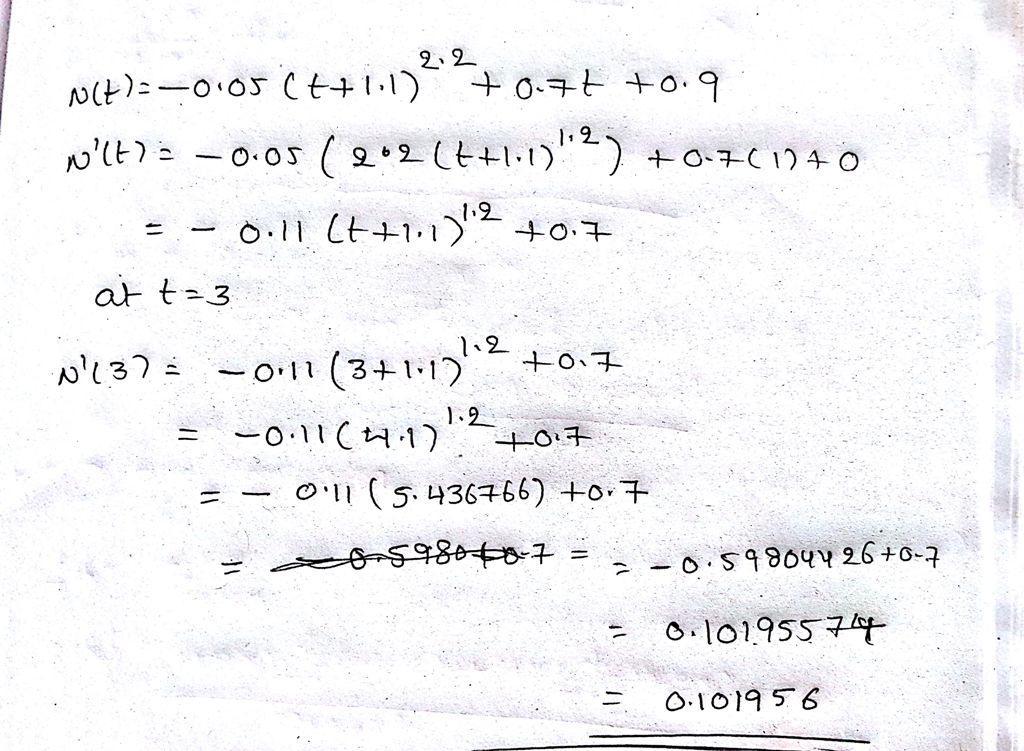 N(t)=-0.05 (t+1.1)^2.2 + 0.7t +0.9
N'(t) = -0.05 ( 2.2 (t+1.1)^1.2 ) +0.7(1)+0
= - 0.11 (t+1.1)^1.2 +0.7
at t=3
N'(3) = -0.11 (3+1.1)^1.2 +0.7
= -0.11 (4.1)^1.2 +0.7
= - 0.11 (5.436766) +0.7
= -0.5980+0.7 = = -0.59804426+0.7
= 0.10195574
= 0.101956